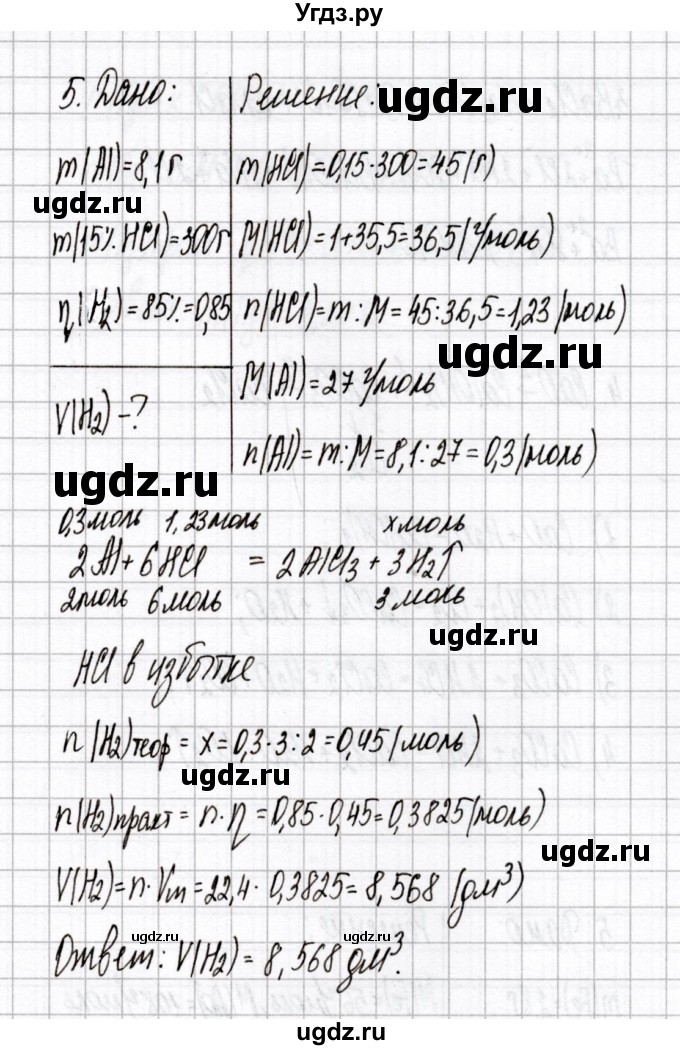 Угдз.ру
5. Дано:
Решение:
ugdz.ru
m(Al)=8,1 г
m(HCl)=0,15·300=45(г)
ugdz.ru
m(15% HCl)=300г
M(HCl)=1+35,5=36,5(г/моль)
η(H₂)=85%=0,85
n(HCl)=m:M=45:36,5=1,23(моль)
ugdz.ru
M(Al)=27 г/моль
V(H₂)-?
n(Al)=m:M=8,1:27=0,3(моль)
ugdz.ru
0,3моль 1,23моль xмоль
2Al+6HCl = 2AlCl₃+3H₂↑
2моль 6моль 3моль
ugdz.ru
HCl в избытке
n(H₂)теор=x=0,3·3:2=0,45(моль)
ugdz.ru
n(H₂)практ=n·η=0,85·0,45=0,3825(моль)
ugdz.ru
V(H₂)=n·Vm=22,4·0,3825=8,568(дм³)
ugdz.ru ugdz.ru
Ответ: V(H₂)=8,568 дм³.
ugdz.ru